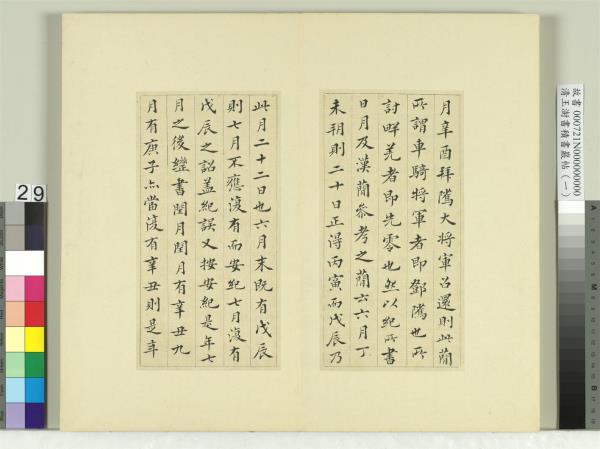 月辛酉拜隲大将軍召還則此蕳
所謂車騎將軍者即鄧隲也所
討畔羌者即先零也然以紀所書
日月及漢蕳叅考之蕳云六月丁
未朔則二十日正得丙寅而戊辰乃
此月二十二日也六月末既有戊辰
則七月不應復有而安紀七月復有
戊辰之詔盖紀誤又按安紀是年七
月之後繼書閏月閏月有辛丑九
月有庚子亦當復有辛丑則是年
29
故書 000721N000000000
清王澍書積書巖帖（一）